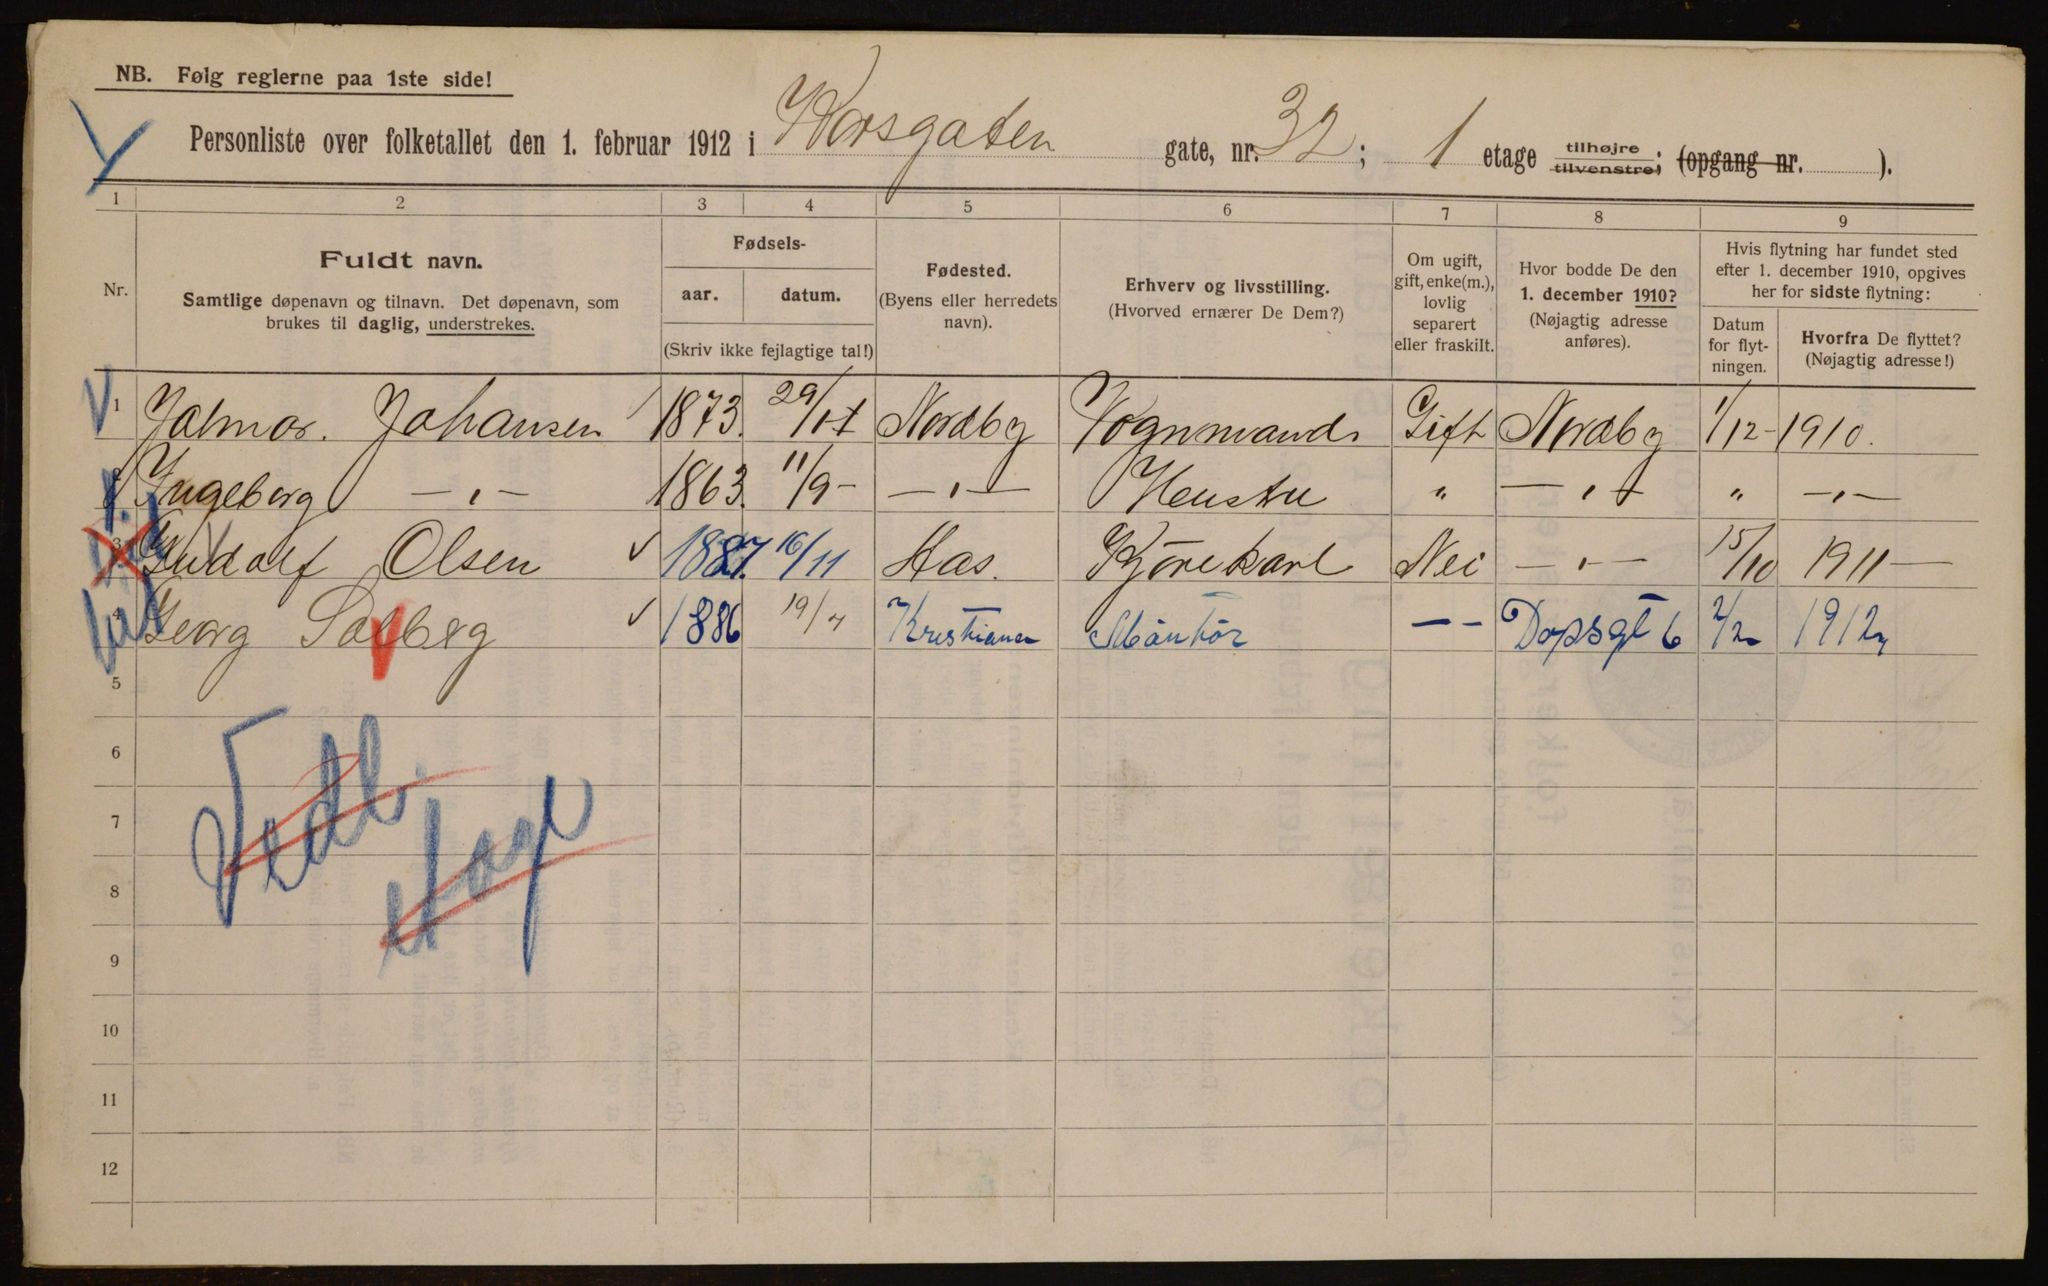 NB. Følg reglerne paa 1ste side!
Personliste over folketallet den 1. februar 1912 i Korsgaten gate, nr. 32; 1 etage tilhøjre tilvenstre; (opgang nr. ).
1 2 3 4 5 6 7 8 9
Nr.
Fuldt navn.
Samtlige døpenavn og tilnavn. Det døpenavn, som
brukes til daglig, understrekes.
Fødsels-
aar. datum.
(Skriv ikke fejlagtige tal!)
Fødested.
(Byens eller herredets
navn).
Erhverv og livsstilling.
(Hvorved ernærer De Dem?)
Om ugift,
gift, enke(m.),
lovlig
separert
eller fraskilt.
Hvor bodde De den
1. december 1910?
(Nøjagtig adresse
anføres).
Hvis flytning har fundet sted
efter 1. december 1910, opgives
her for sidste flytning:
Datum
for flyt-
ningen.
Hvorfra De flyttet?
(Nøjagtig adresse!)
1 Jalmar. Johansen 1873. 29/ Nordby Vognmand Gift Nordby 1/12 - 1910.
Ingeborg —"— 1863. 11/9 - —"— Hustru " —"— " —"—
3 Olsen 1887. 16/11 Aas. Kjørekarl Nei —"— 15/10 1911 —
4 Georg Solberg 1886 19/ Kristiania Montør — — 6 1912
5
6
7
8
9
10
11
12
Vedl.